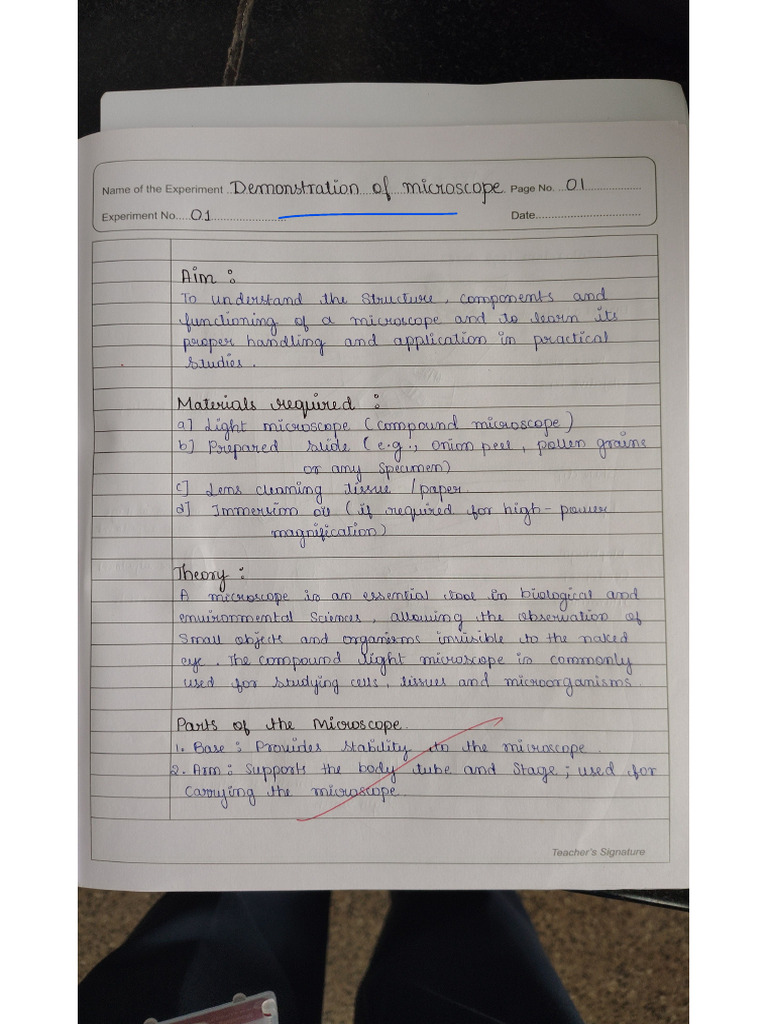 Name of the Experiment Demonstration of microscope Page No. 01
Experiment No. 01 Date
Aim :
To understand the structure, components and
functioning of a microscope and to learn its
proper handling and application in practical
studies.
Materials required :
a] Light microscope (compound microscope)
b] Prepared slide (e.g., onion peel, pollen grains
or any specimen)
c] Lens cleaning tissue / paper
d] Immersion oil (if required for high-power
magnification)
Theory :
A microscope is an essential tool in biological and
environmental sciences, allowing the observation of
small objects and organisms invisible to the naked
eye. The compound light microscope is commonly
used for studying cells, tissues and microorganisms.
Parts of the Microscope.
1. Base : Provides stability to the microscope.
2. Arm : Supports the body tube and stage ; used for
carrying the microscope.
Teacher's Signature